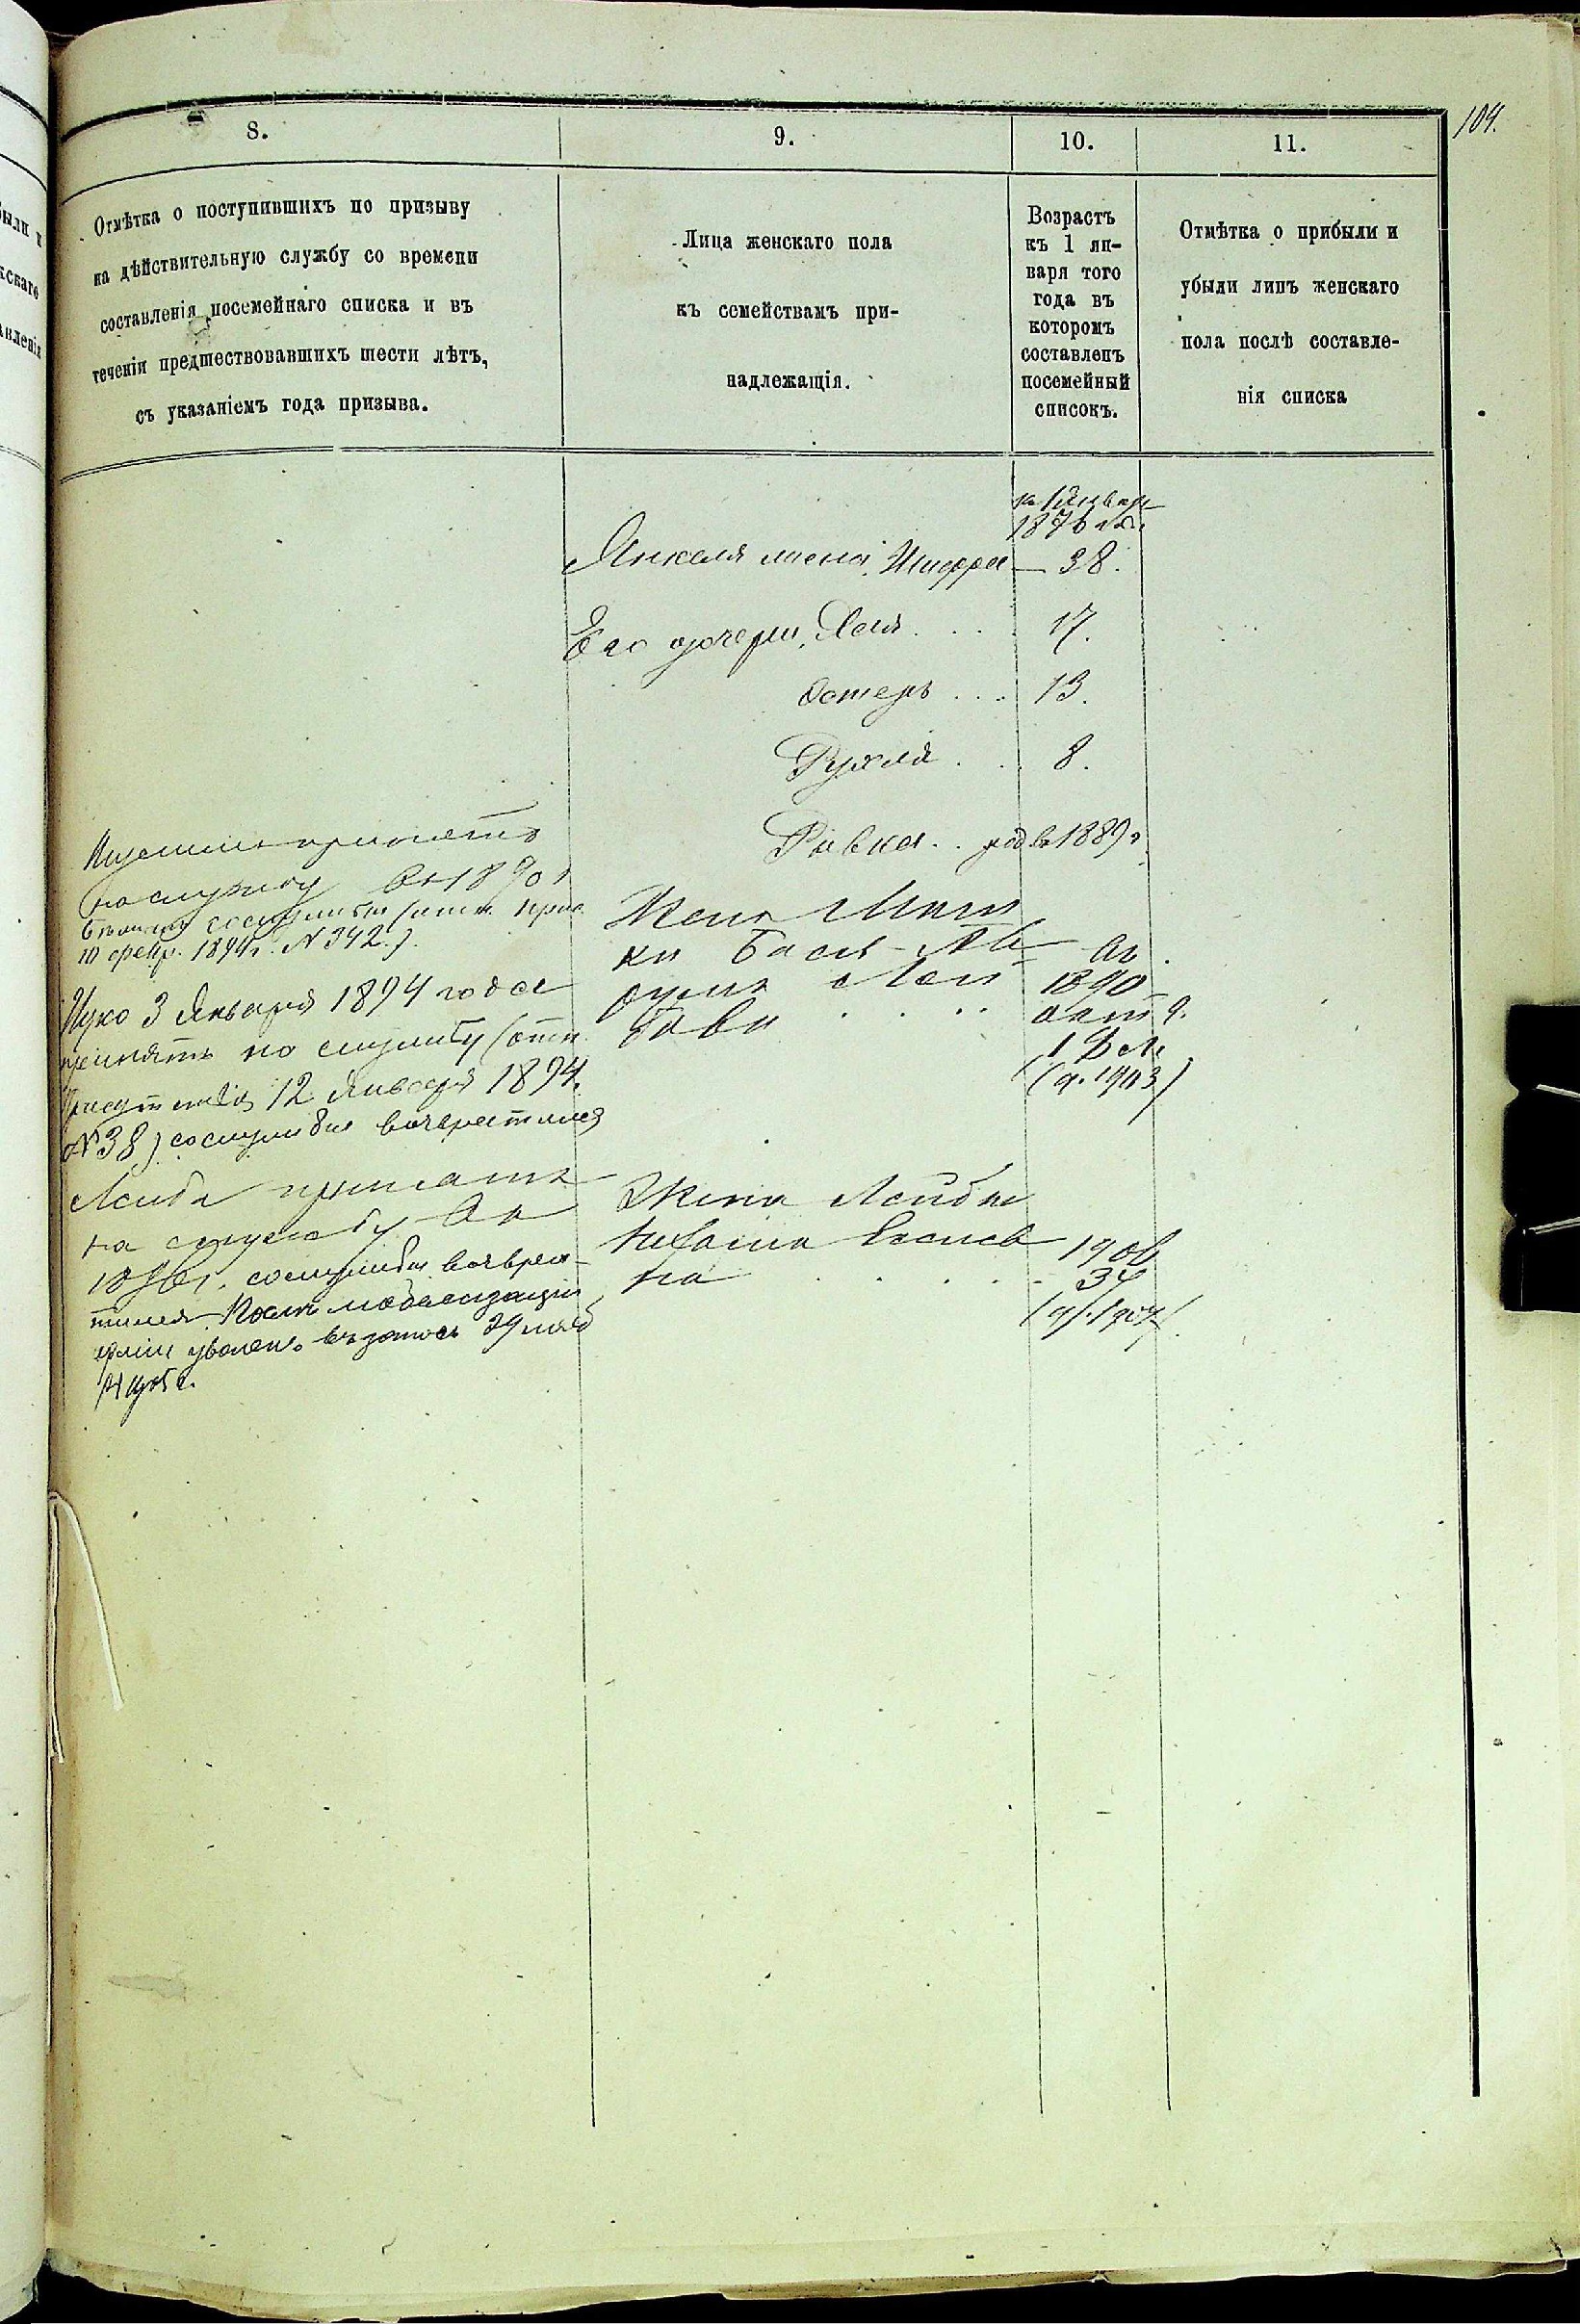 104.
8.
9.
10.
11.
Отмѣтка о поступившихъ по призыву
на дѣйствительную службу со времени
составленія посемейнаго списка и въ
теченіи предшествовавшихъ шести лѣтъ,
съ указаніемъ года призыва.
Лица женскаго пола
къ семействамъ при-
надлежащія.
Возрастъ
къ 1 ян-
варя того
года въ
которомъ
составленъ
посемейный
списокъ.
Отмѣтка о прибыли и
убыли лицъ женскаго
пола послѣ составле-
нія списка
1876
Янкеля жена Шифра — 38.
Его дочери, Хая . . . . 17.
Эстеръ . . . 13.
Рухля . . . 8.
Ривка . . род. въ 1889 г.
принятъ
на службу въ 1890 г
10 февр. 1894 г. N 342.)
Ицко 3 Января 1894 года
принятъ на службу (отн.
Присутствія 12 Января 1894.
N 38) со службы возвратился
Жена
Бася
1890
(о. 1903)
Лейба принятъ
на службу въ
со службы возвра-
тился. Посл. мобилизаціи
арміи уволенъ въ запасъ 29 нояб
Жена Лейбы
на . . . . . . 34